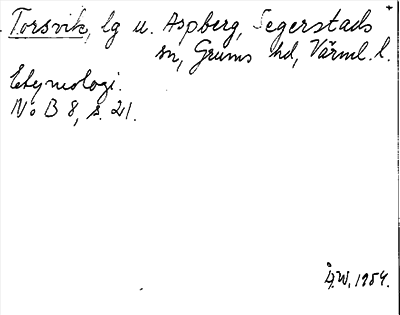 Torsvik, lg u. Aspberg, Segerstads
sn, Grums hd, Värml. l.
Etymologi.
No B 8, s. 21.
Å.W. 1954.